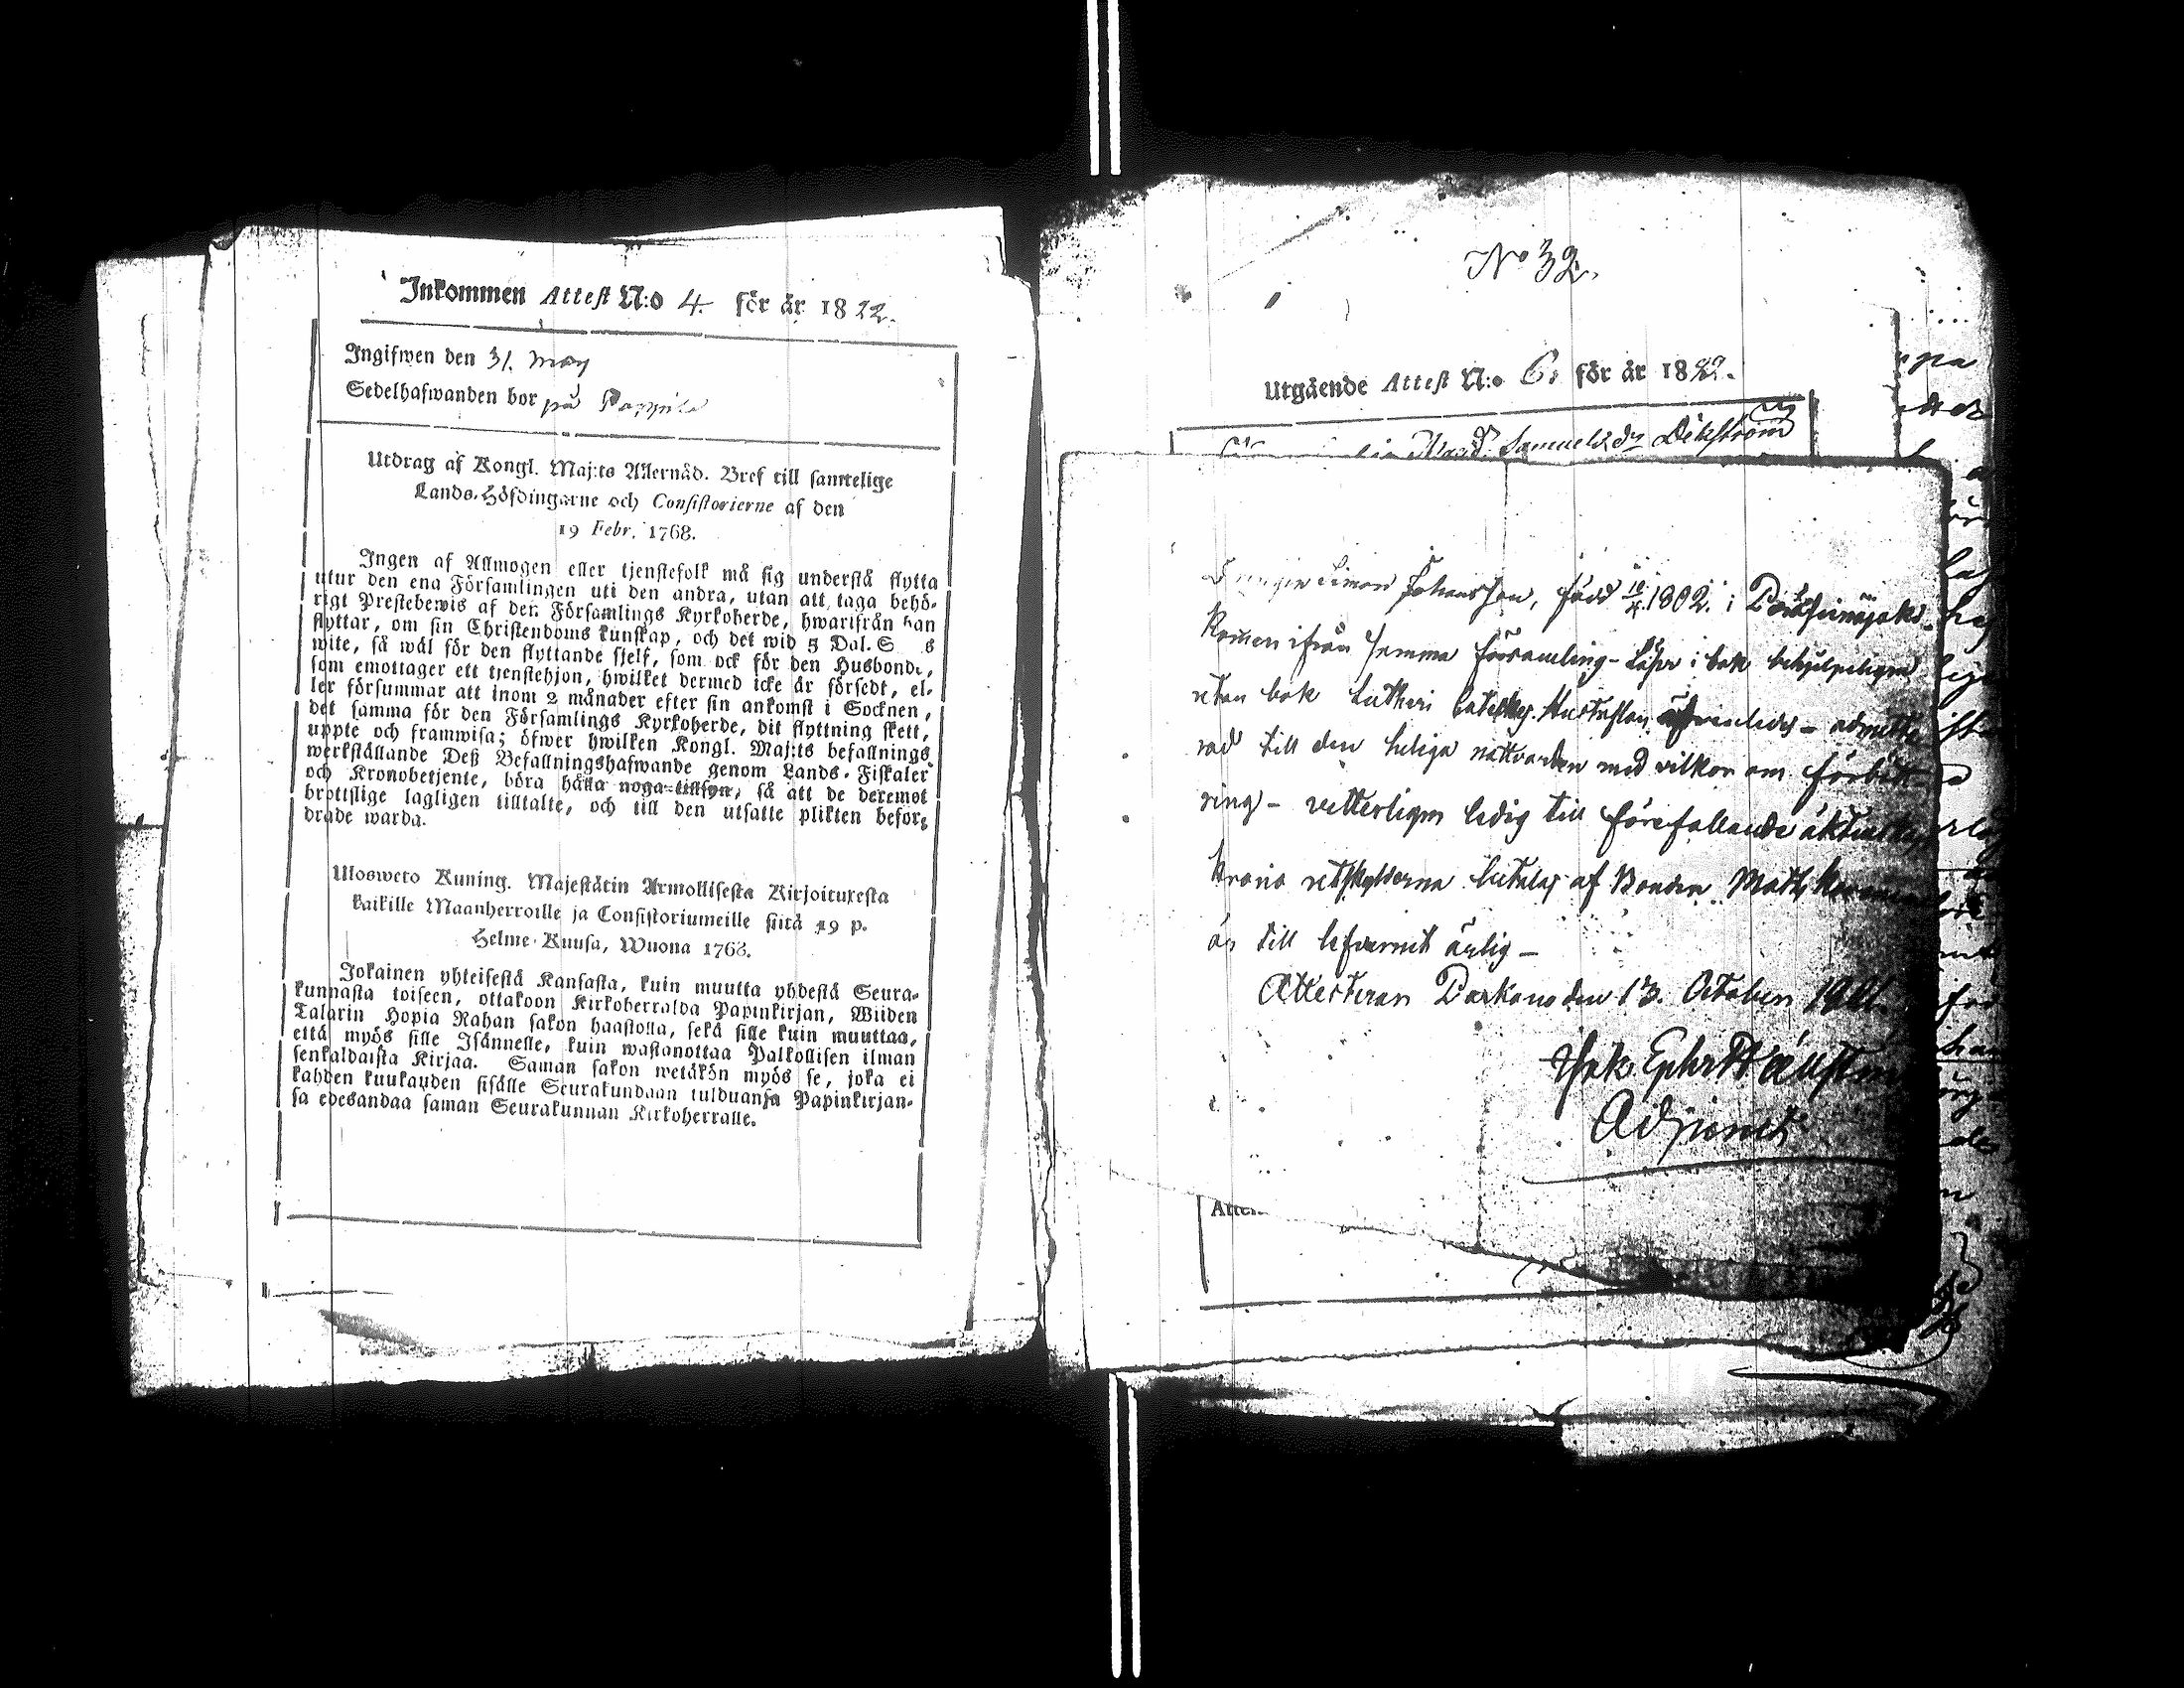 Inkommen Attest N:o 4. för år 1822.
Ingifwen den 31. May
Sedelhafwanden bor på Pappila
Utdrag af Kongl. Maj:ts Allernåd. Bref till samtelige
Lands-Höfdingarne och Consistorierne af den
19 Febr. 1768.
Ingen af Allmogen eller tjenstefolk må sig understå flytta
utur den ena Församlingen uti den andra, utan att taga behö-
rigt Prestebewis af den Församlings Kyrkoherde, hwarifrån han
flyttar, om sin Christendoms kunskap, och det wid 5 Dal. S s
wite, så wål för den flyttande sjelf, som ock för den Husbonde,
som emottager ett tjenstehjon, hwilket dermed icke är försedt, el-
ler försummar att inom 2 månader efter sin ankomst i Socknen,
det samma för den Församlings Kyrkoherde, dit flyttning skett,
uppte och framwisa; öfwer hwilken Kongl. Maj:ts befallnings
werkställande Deß Befallningshafwande genom Lands-Fiskaler
och Kronobetjente, böra hålla noga tillsyn, så att de deremot
brottslige lagligen tilltalte, och till den utsatte plikten befor-
drade warda.
Ulosweto Kuning. Majestätin Armollisesta Kirjoituxesta
kaikille Maanherroille ja Consistoriumeille siitä 19 p.
Helme-Kuusa, Wuona 1768.
Jokainen yhteisestä Kansasta, kuin muutta yhdestä Seura-
kunnasta toiseen, ottakoon Kirkoherralda Papinkirjan, Wiiden
Talarin Hopia Rahan sakon haastolla, sekä sille kuin muuttaa,
että myös sille Isännelle, kuin wastanottaa Palkollisen ilman
senkaldaista Kirjaa. Saman sakon wetäkön myös se, joka ei
kahden kuukauden sisälle Seurakundaan tulduansa Papinkirjan-
sa edesandaa saman Seurakunnan Kirkoherralle.
No 32.
Utgående Attest N:o 6. för år 1822.
Samuelsdr Dikström
Drängen Simon Johansson, född 1802. i
kommen ifrån samma församling - Läser i bok behjelpeligen
utan bok Lutheri Hustaflan - admitte
rad till den heliga nattvarden med vilkor om förbätt
ring - vetterligen ledig till förefallande äktenskap
krono utskylderna betalas af Bonden Matts
är till lefvernet ärlig -
Attesteras Parkano den 13. October
Adjunct